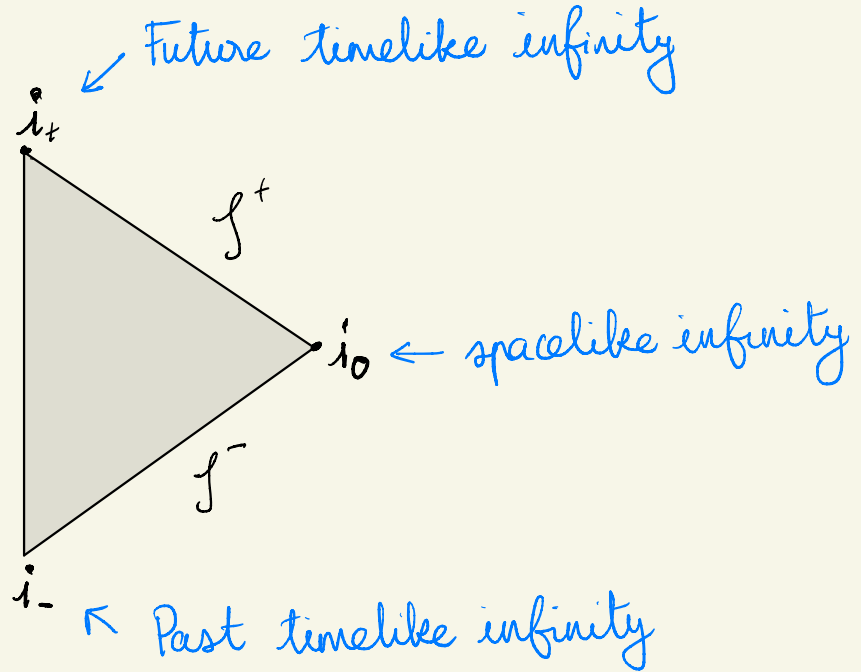 Future timelike infinity
i₊
𝒥⁺
i₀ ← spacelike infinity
𝒥⁻
i₋
Past timelike infinity